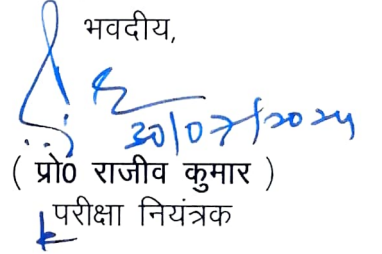 भवदीय,
30/07/2024
( प्रो0 राजीव कुमार )
परीक्षा नियंत्रक